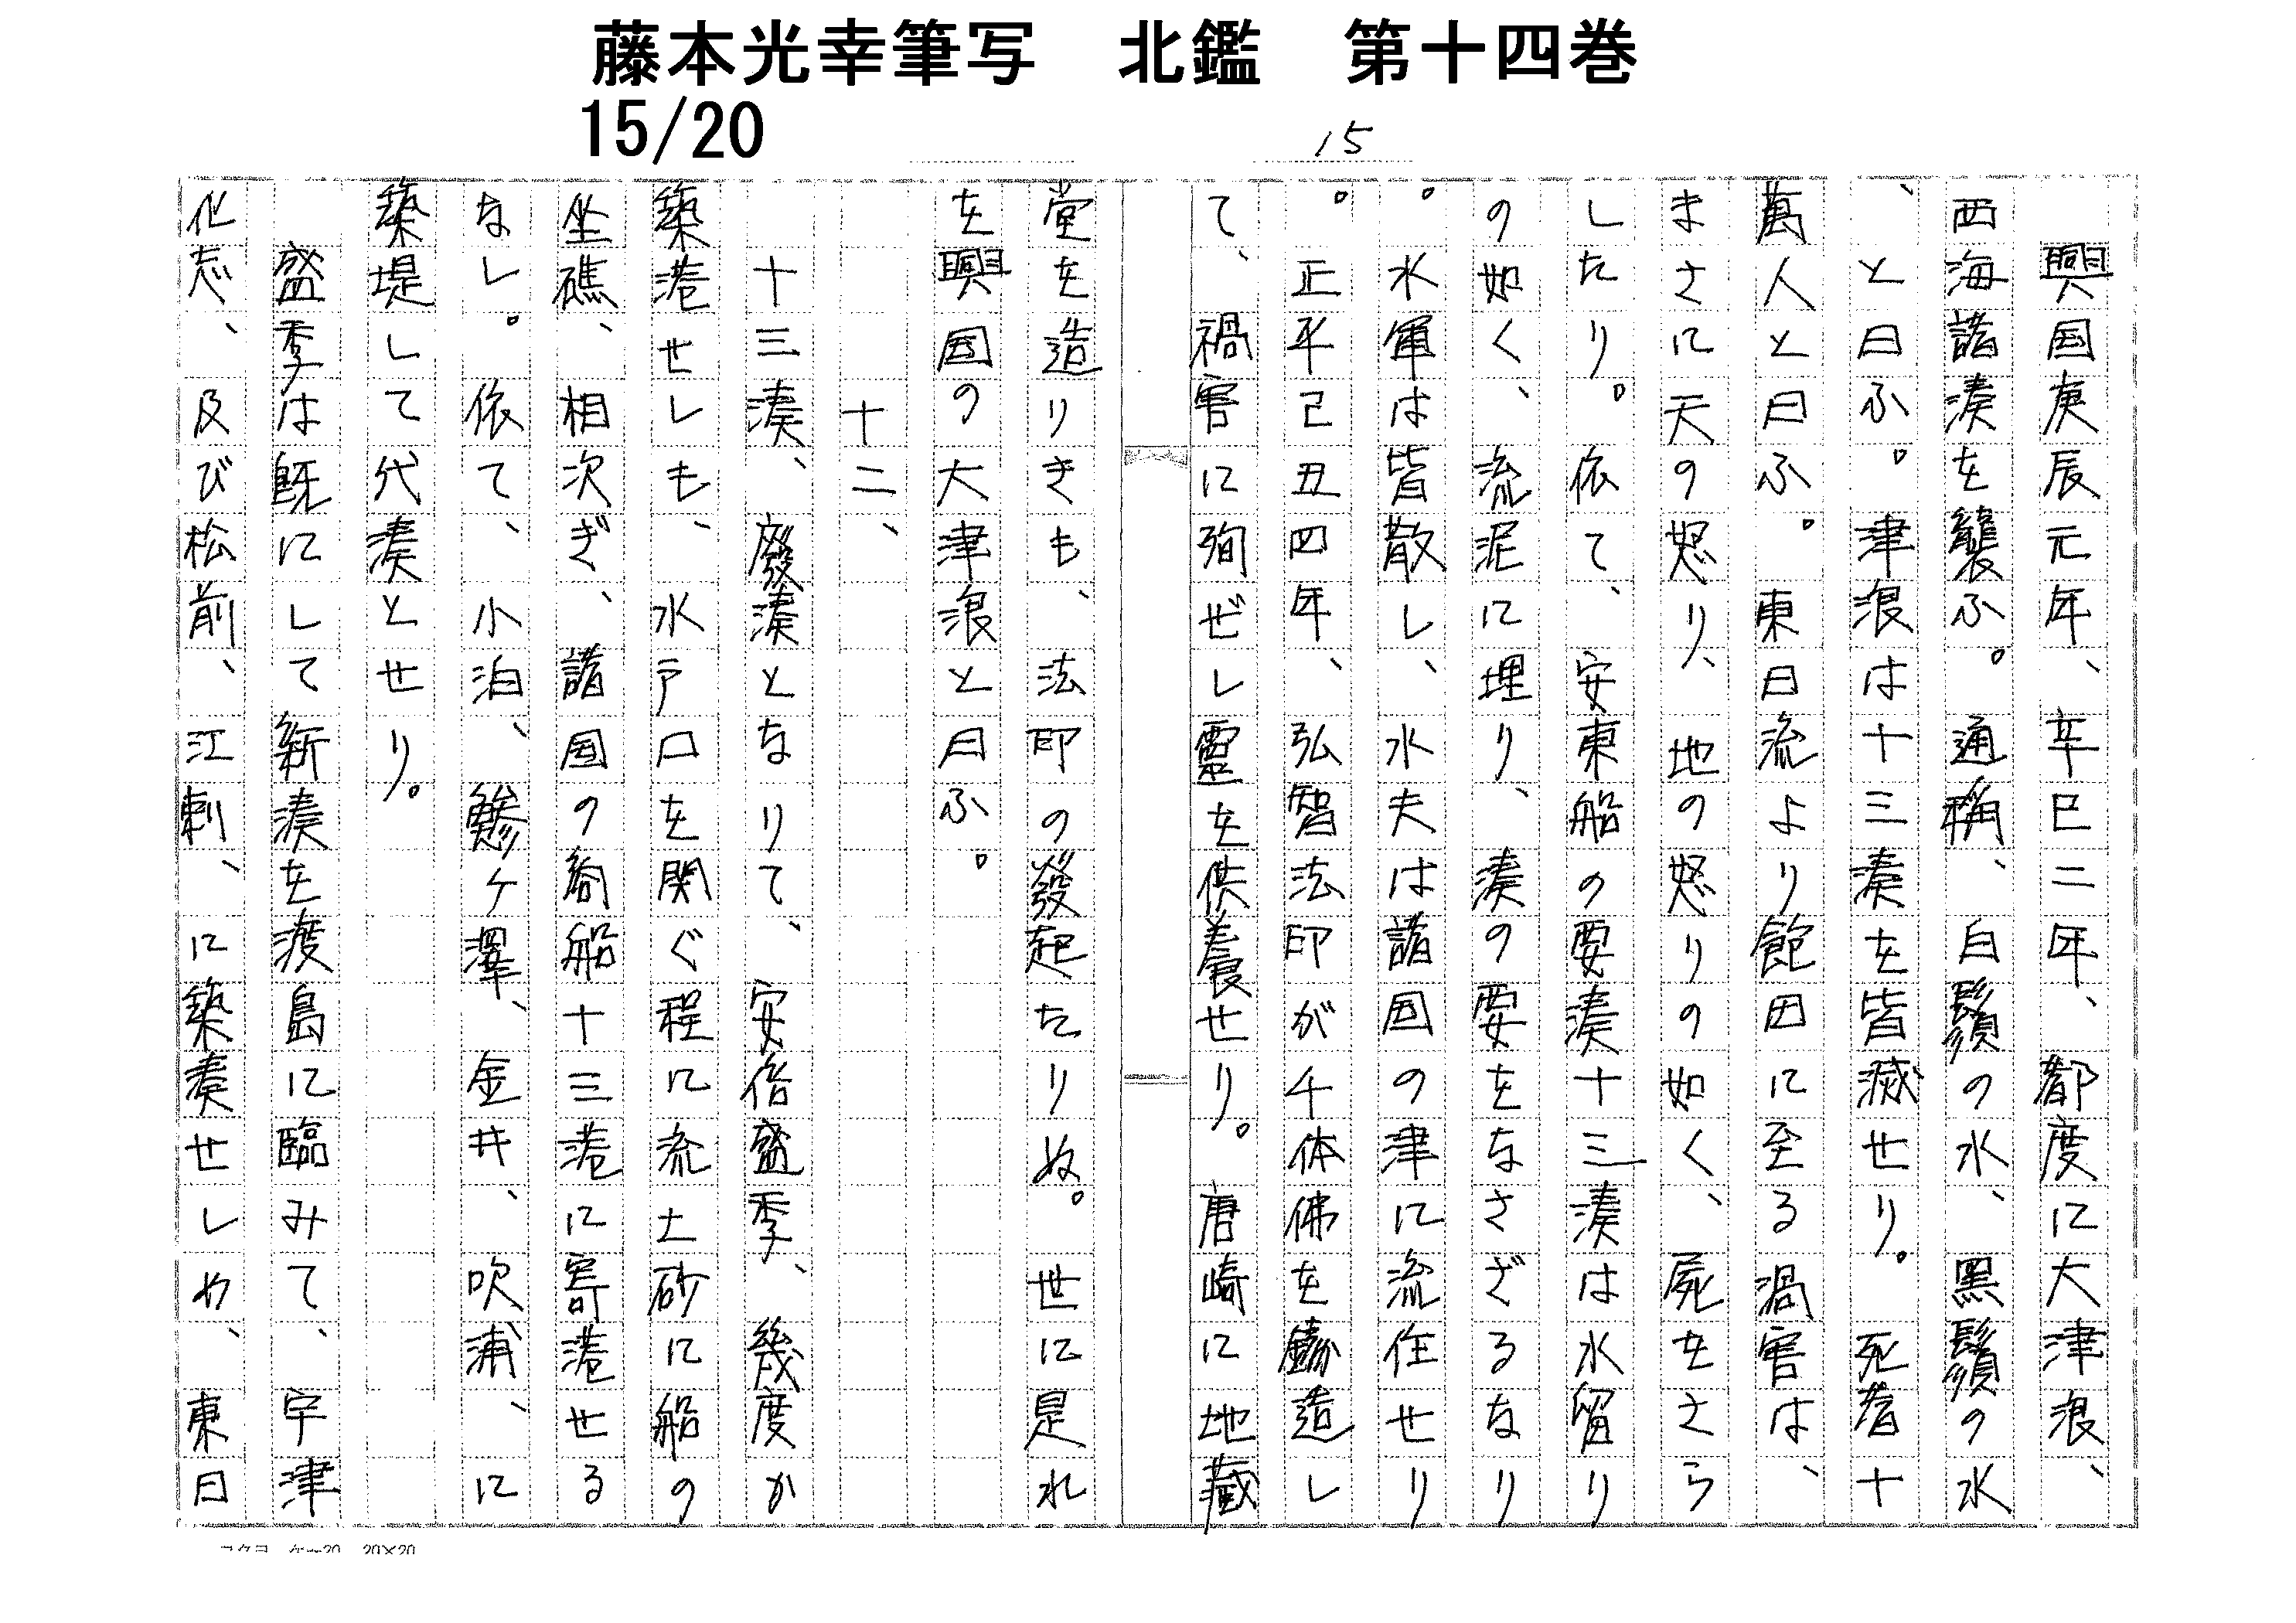 藤本光幸筆写　北鑑　第十四巻
15/20
15
興国庚辰元年、辛巳二年、都度に大津浪、
西海諸湊を襲ふ。通稱、白鬚の水、黒鬚の水
、と曰ふ。津浪は十三湊を皆滅せり。死者十
萬人と曰ふ。東日流より飽田に至る渦害は、
まさに天の怒り、地の怒りの如く、屍をさら
したり。依て、安東船の要湊十三湊は水留り
の如く、流泥に埋り、湊の要をなさざるなり
。水軍は皆散し、水夫は諸国の津に流住せり
。正平己丑四年、弘智法印が千体佛を鋳造し
て、禍害に殉ぜし霊を供養せり。唐崎に地蔵
堂を造りきも、法印の發起たりぬ。世に是れ
を興国の大津浪と曰ふ。
十二、
十三湊、廢湊となりて、安倍盛季、幾度か
築港せしも、水戸口を関ぐ程に流土砂に船の
坐礁、相次ぎ、諸国の商船十三港に寄港せる
なし。依て、小泊、鰺ヶ澤、金井、吹浦、に
築堤して代湊とせり。
盛季は既にして新湊を渡島に臨みて、宇津
化志、及び松前、江刺、に築湊せしめ、東日
コクヨ　ケー20　20×20